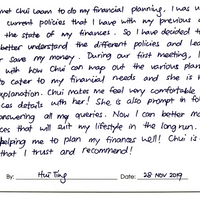 met Chui Loom to do my financial planning. I was
current policies that I have with my previous
the state of my finances. So I have decided to
better understand the different policies and
save my money. During our first meeting, I
with how Chui can map out the various plan
to cater to my financial needs and she is
explanation. Chui makes me feel very comfortable
details with her! She is also prompt in
answering all my queries. Now I can better
that will suit my lifestyle in the long run.
helping me to plan my finances well! Chui is
that I trust and recommend!
By: Hui Ting Date: 28 NOV 2019